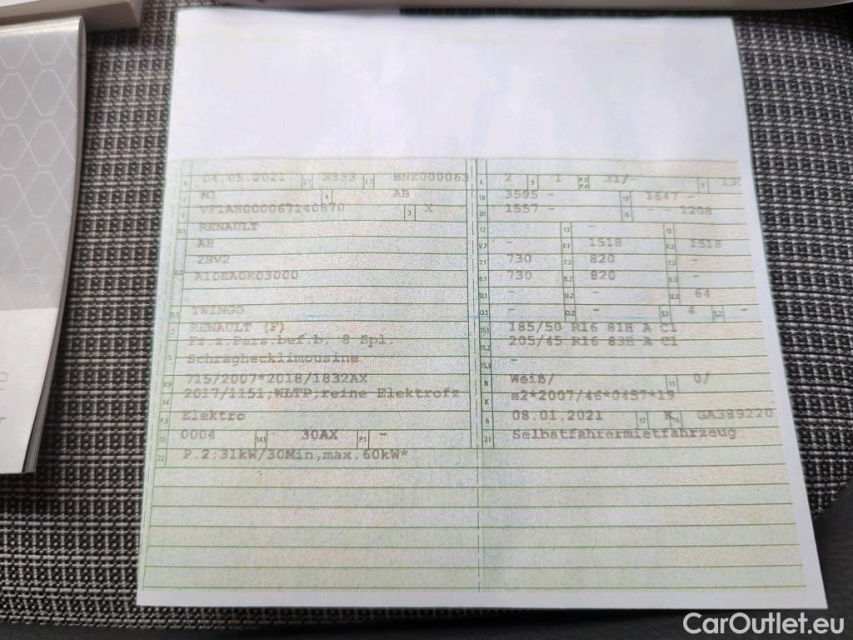 04.05.2021 3333 BNZ000063 2 1 31/-
M1 AB 3595 - 1647 -
VF1AH000067140870 X 1557 - - 1208
RENAULT
AH - 1518 - 1518
2BV2 730 820 -
A10EA0K03000 730 820 -
- - 64
TWINGO - - 4 -
RENAULT (F) 185/50 R16 81H A C1
Fz.z.Pers.bef.b. 8 Spl. 205/45 R16 83H A C1
Schräghecklimousine -
715/2007*2018/1832AX Weiß/ 0/
2017/1151,WLTP;reine Elektrofz e2*2007/46*0457*19
Elektro 08.01.2021 K GA389220
0004 30AX - Selbstfahrermietfahrzeug
P.2:31kW/30Min,max.60kW*
CarOutlet.eu